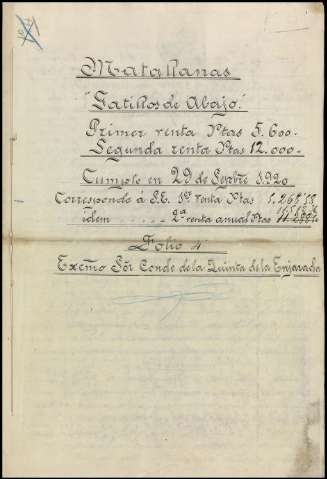 Matallanas
"Gatillos de Abajo."
Primer renta Ptas 5.600.
Segunda renta Ptas 12.000.
Cumple en 29 de Sepbre 1.920
Corresponde á S.E. 1ª renta Ptas
idem " 2ª renta anual Ptas
Folio 4
Excmo Sór Conde de la Quinta de la Enjarada